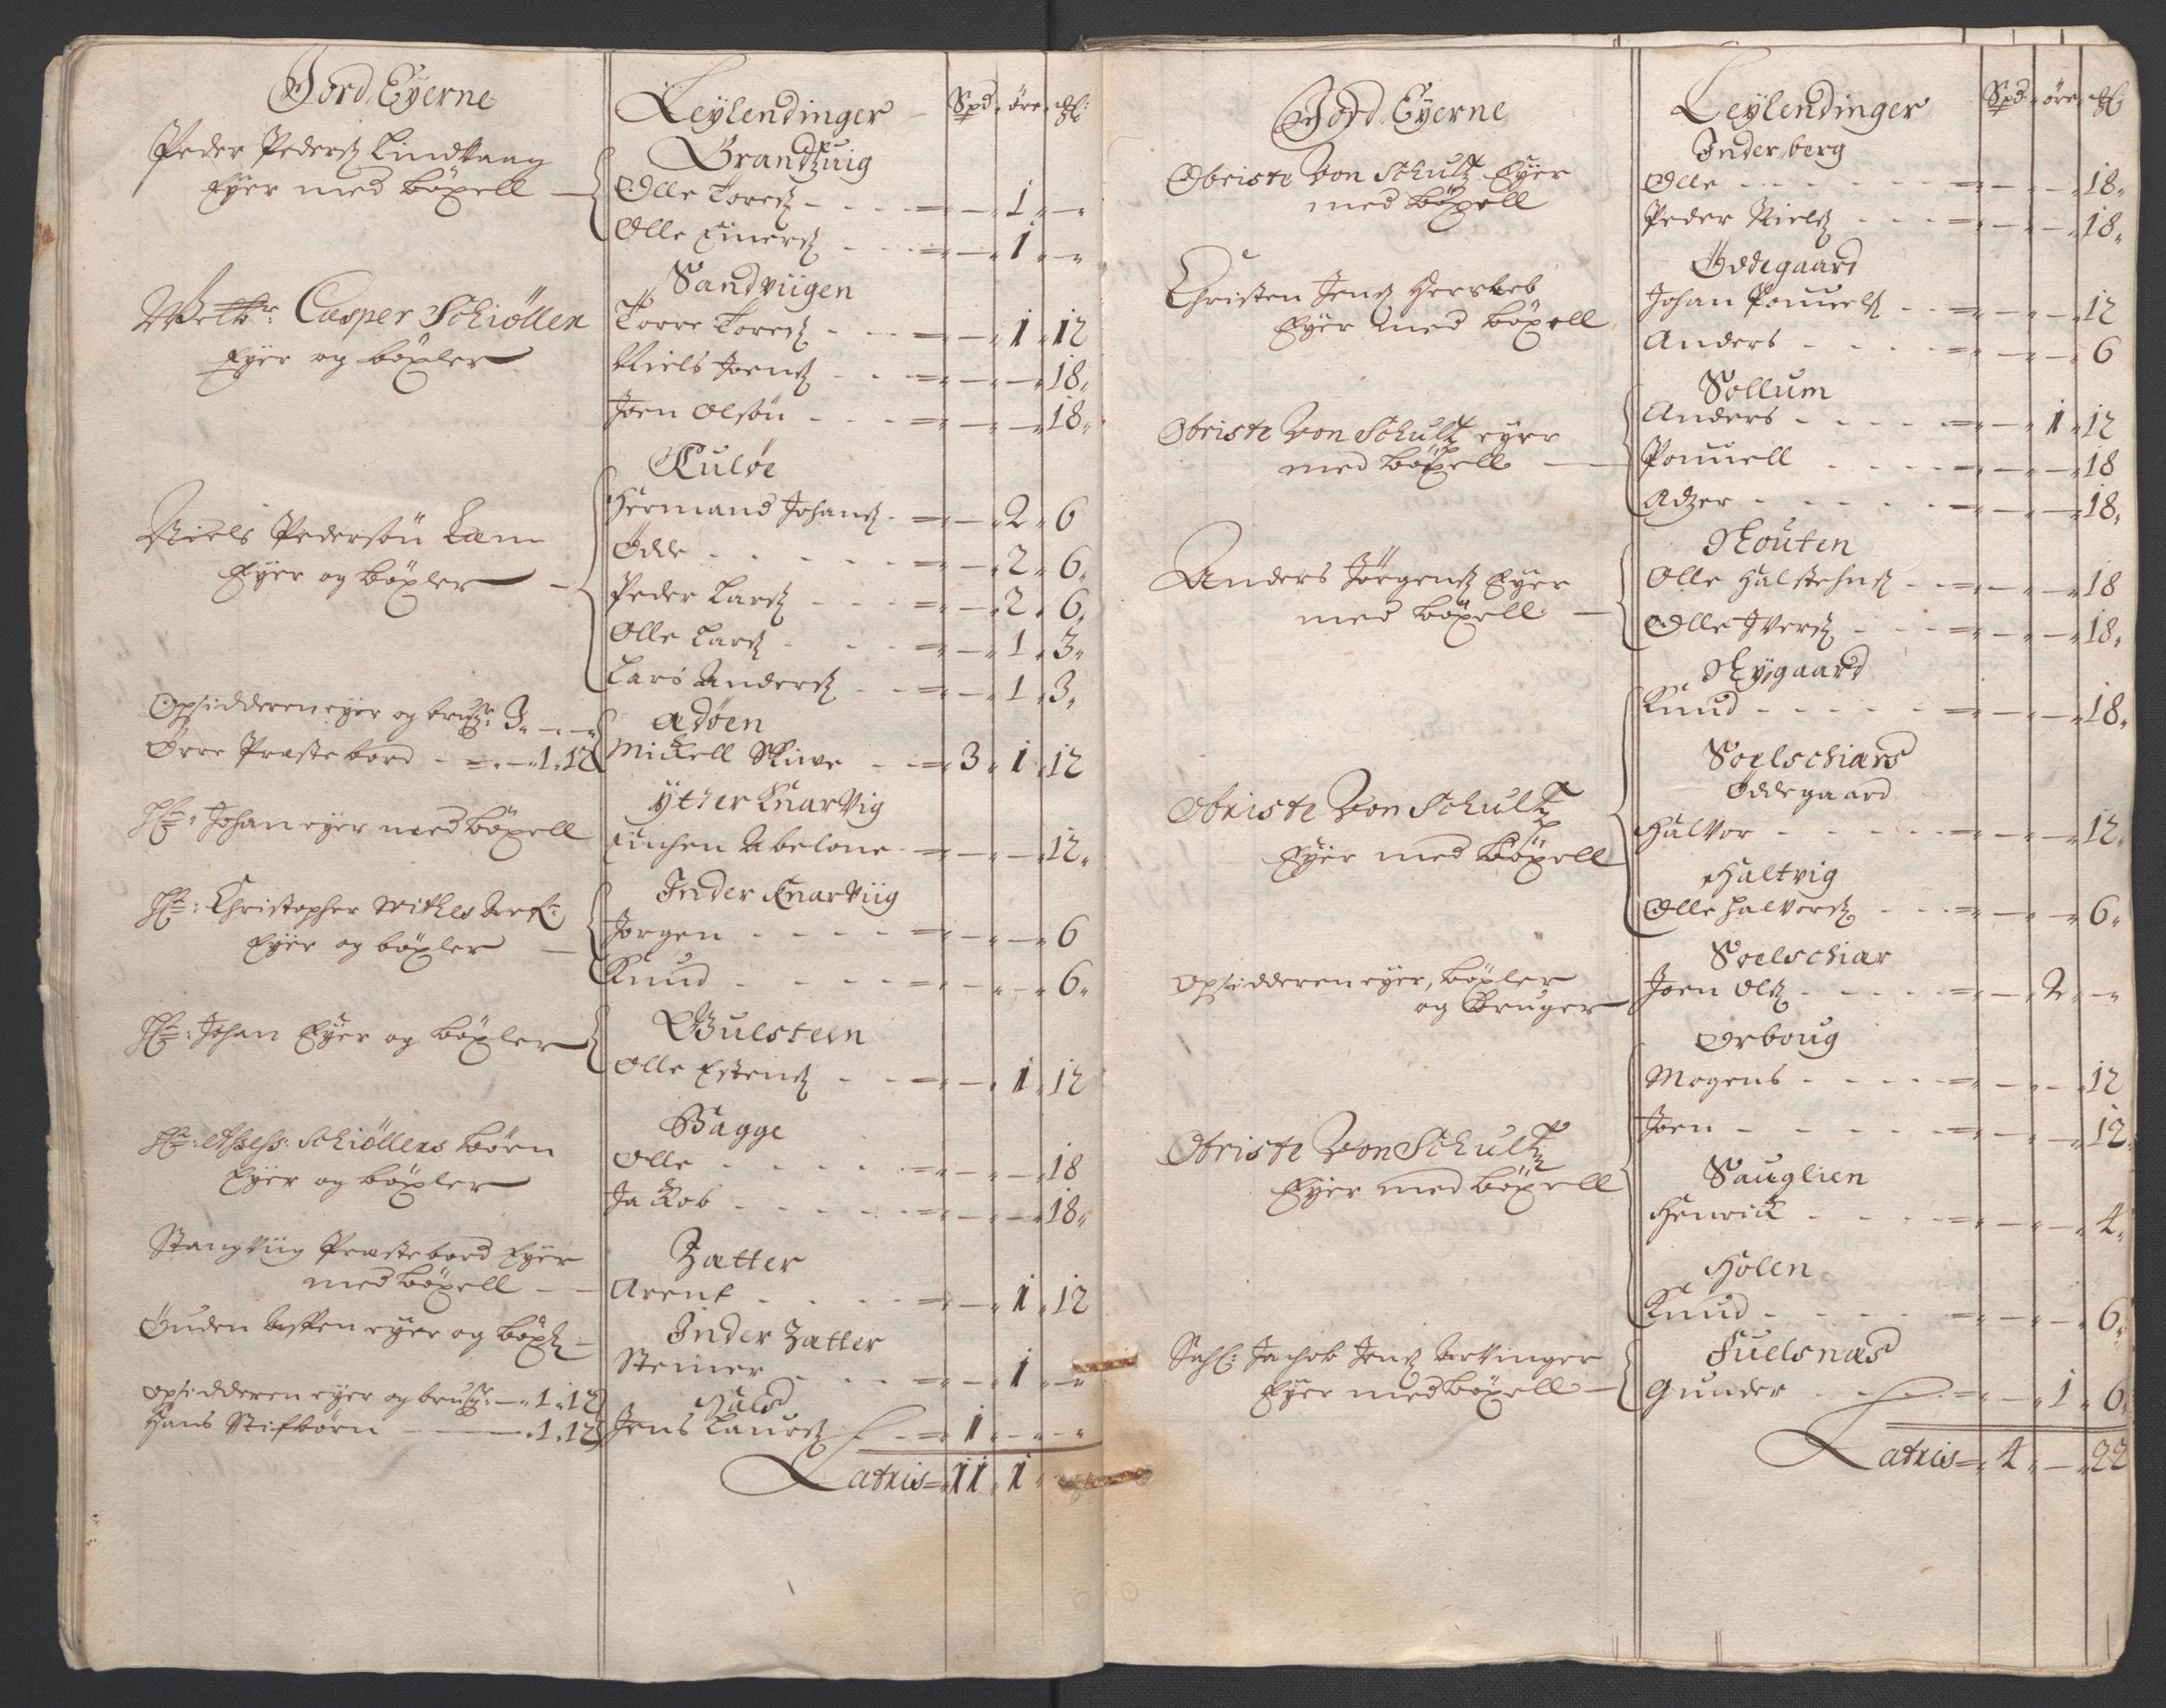 Jord Eyerne
Peder Pederß Lindvaag
Eyer med böxell
Welbr: Casper Schiöller
Eyer og böxler
Niels Pedersøn
Eyer og böxler
Opsidderen eyer og brug: 3 „ — „ —
Örre Præstebord - = „ — „ 1 „ 12
Hr: Johan eyer med böxell
Hr: Christopher
Eyer og böxler
Hr: Johan Eyer og böxler
Hr: Assess: Schiöllers börn
Eyer og böxler
Stangviig Præstebord Eyer
med böxell
eyer og böxl
opsidderen eyer og brug: — „ 1 „ 12
Hans Stifbörn — „ 1 „ 12
Leylendinger - Spd „ öre „ mk:
Grandzuig
Olle Toreß - - - = „ — „ 1 „ — „
Olle Einerß - - - = „ — „ 1 „ — „
Sandviigen
Torre Toreß - - - = „ — „ 1 „ 12
Niels Joenß - - = „ — „ — „ 18 „
Joen Olsön - - - = „ — „ — „ 18 „
Kuløe
Hermand Johanß - = „ — „ 2 „ 6
Odde - - - - = „ — „ 2 „ 6 „
Peder Larß - - - = „ — „ 2 „ 6 „
Olle Larß - - - = „ — „ 1 „ 3 „
Lars Anderß - - = „ — „ 1 „ 3 „
Adöen
Mickell Skiwe - - = „ 3 „ 1 „ 12
Ytter Knarvig
Enchen Abelone - = „ — „ — „ 12 „
Inder Knarviig
Jörgen - - - - = „ — „ — „ 6
Knud - - - - = „ — „ — „ 6 „
Gulstein
Olle Estenß - - = „ — „ 1 „ 12
Bagge
Olle - - - - = „ — „ — „ 18
Jackob - - - - = „ — „ — „ 18 „
Zætter
Arent - - - - = „ — „ 1 „ 12
Inder Zætter
Steiner - - - = „ — „ 1 „ — „
Jens Laurß - - = „ 1 „ — „ — „
Latris = „ 11 „ 1 „
Jord Eyerne
Obriste Von Schultz Eyer
med böxell
Christen Jenß Herskeb
Eyer med böxell
Obriste Von Schultz eyer
med böxell
Anders Jörgenß Eyer
med böxell
Obriste Von Schultz
Eyer med Böxell
opsidderen eyer, böxler
og Bruger
Obriste Von Schultz
Eyer med böxell
Sahl: Jachob Jenß
Eyer med böxell
Leylendinger Spd „ öre „ mk
Inderberg
Olle - - - - = „ — „ — „ 18 „
Peder Nielß - - - = „ — „ — „ 18 „
Ödegaard
Johan Pouelß - - = „ — „ — „ 12
Anders - - - - = „ — „ — „ 6
Sollum
Anders - - - - = „ — „ 1 „ 12
Pouell - - - - = „ — „ — „ 18
Adzer - - - - = „ — „ — „ 18 „
Nouten
Olle Halstehnß - - = „ — „ — „ 18
Olle Iverß - - - = „ — „ — „ 18 „
Nygaard
Knud - - - - = „ — „ — „ 18 „
Soelschiærs
Öddegaard
Halvor - - - - = „ — „ — „ 12 „
Haltvig
Olle Halvorß - - = „ — „ — „ 6 „
Soelschiær
Joen Olß - - - - = „ — „ 2 „ — „
Orboug
Mogens - - - - = „ — „ — „ 12
Joen - - - - = „ — „ — „ 12 „
Sauglien
Henrick - - - - = „ — „ — „ 4 „
Holen
Knud - - - - = „ — „ — „ 6 „
Fuelsnæs
Gunder - - - = „ — „ 1 „ 6 „
Latris = „ 4 „ — „ 22